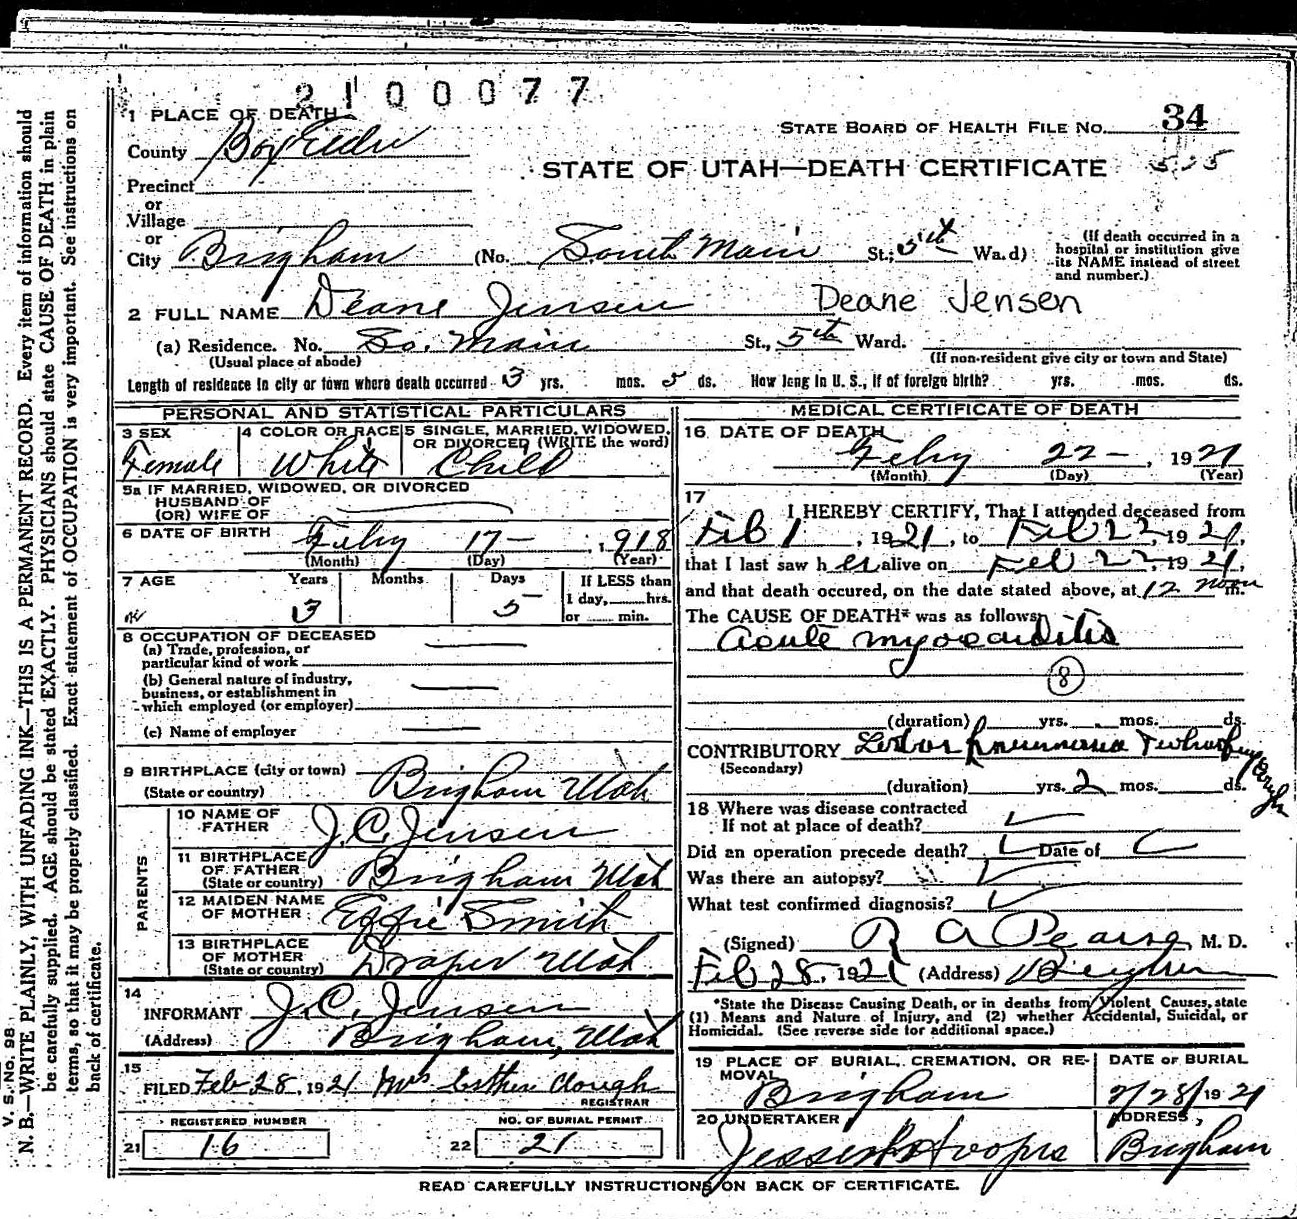 2100077
1 PLACE OF DEATH
STATE BOARD OF HEALTH FILE NO. 34
County Box Elder
STATE OF UTAH—DEATH CERTIFICATE
Precinct
or
Village
or
City Brigham (No. South Main St.; 5th Ward)
(If death occurred in a hospital or institution give its NAME instead of street and number.)
2 FULL NAME Deane Jensen Deane Jensen
(a) Residence. No. So. Main St., 5th Ward.
(Usual place of abode) (If non-resident give city or town and State)
Length of residence in city or town where death occurred 3 yrs. mos. 5 ds. How long in U. S., if of foreign birth? yrs. mos. ds.
PERSONAL AND STATISTICAL PARTICULARS
3 SEX Female
4 COLOR OR RACE White
5 SINGLE, MARRIED, WIDOWED, OR DIVORCED (WRITE the word) Child
5a IF MARRIED, WIDOWED, OR DIVORCED
HUSBAND OF
(OR) WIFE OF
6 DATE OF BIRTH Feby 17 — , 1918
(Month) (Day) (Year)
7 AGE Years Months Days If LESS than
3 5 1 day, hrs.
or min.
8 OCCUPATION OF DECEASED
(a) Trade, profession, or
particular kind of work
(b) General nature of industry,
business, or establishment in
which employed (or employer)
(c) Name of employer
9 BIRTHPLACE (city or town)
(State or country) Brigham Utah
PARENTS
10 NAME OF FATHER J. C. Jensen
11 BIRTHPLACE OF FATHER
(State or country) Brigham Utah
12 MAIDEN NAME OF MOTHER Effie Smith
13 BIRTHPLACE OF MOTHER
(State or country) Draper Utah
14
INFORMANT J. C. Jensen
(Address) Brigham, Utah
15
FILED Feb 28, 1921 Mrs Esther Clough
REGISTRAR
REGISTERED NUMBER
21 16
NO. OF BURIAL PERMIT
22 21
MEDICAL CERTIFICATE OF DEATH
16 DATE OF DEATH
Feby 22 — , 1921
(Month) (Day) (Year)
17
I HEREBY CERTIFY, That I attended deceased from
Feb 1 , 1921, to Feb 22, 1921,
that I last saw her alive on Feb 22, 1921,
and that death occured, on the date stated above, at 12 noon m.
The CAUSE OF DEATH* was as follows:
Acute myocarditis
8
(duration) yrs. mos. ds.
CONTRIBUTORY Lobar pneumonia & whooping cough
(Secondary)
(duration) yrs. 2 mos. ds.
18 Where was disease contracted
If not at place of death?
Did an operation precede death? Date of
Was there an autopsy?
What test confirmed diagnosis?
(Signed) R A Pearse, M. D.
Feb 28, 1921 (Address) Brigham
*State the Disease Causing Death, or in deaths from Violent Causes, state
(1) Means and Nature of Injury, and (2) whether Accidental, Suicidal, or
Homicidal. (See reverse side for additional space.)
19 PLACE OF BURIAL, CREMATION, OR REMOVAL
Brigham
DATE OF BURIAL
2/28/1921
20 UNDERTAKER
ADDRESS
Brigham
READ CAREFULLY INSTRUCTIONS ON BACK OF CERTIFICATE.
V. S. No. 98
N. B.—WRITE PLAINLY, WITH UNFADING INK—THIS IS A PERMANENT RECORD. Every item of information should
be carefully supplied. AGE should be stated EXACTLY. PHYSICIANS should state CAUSE OF DEATH in plain
terms, so that it may be properly classified. Exact statement of OCCUPATION is very important. See instructions on
back of certificate.